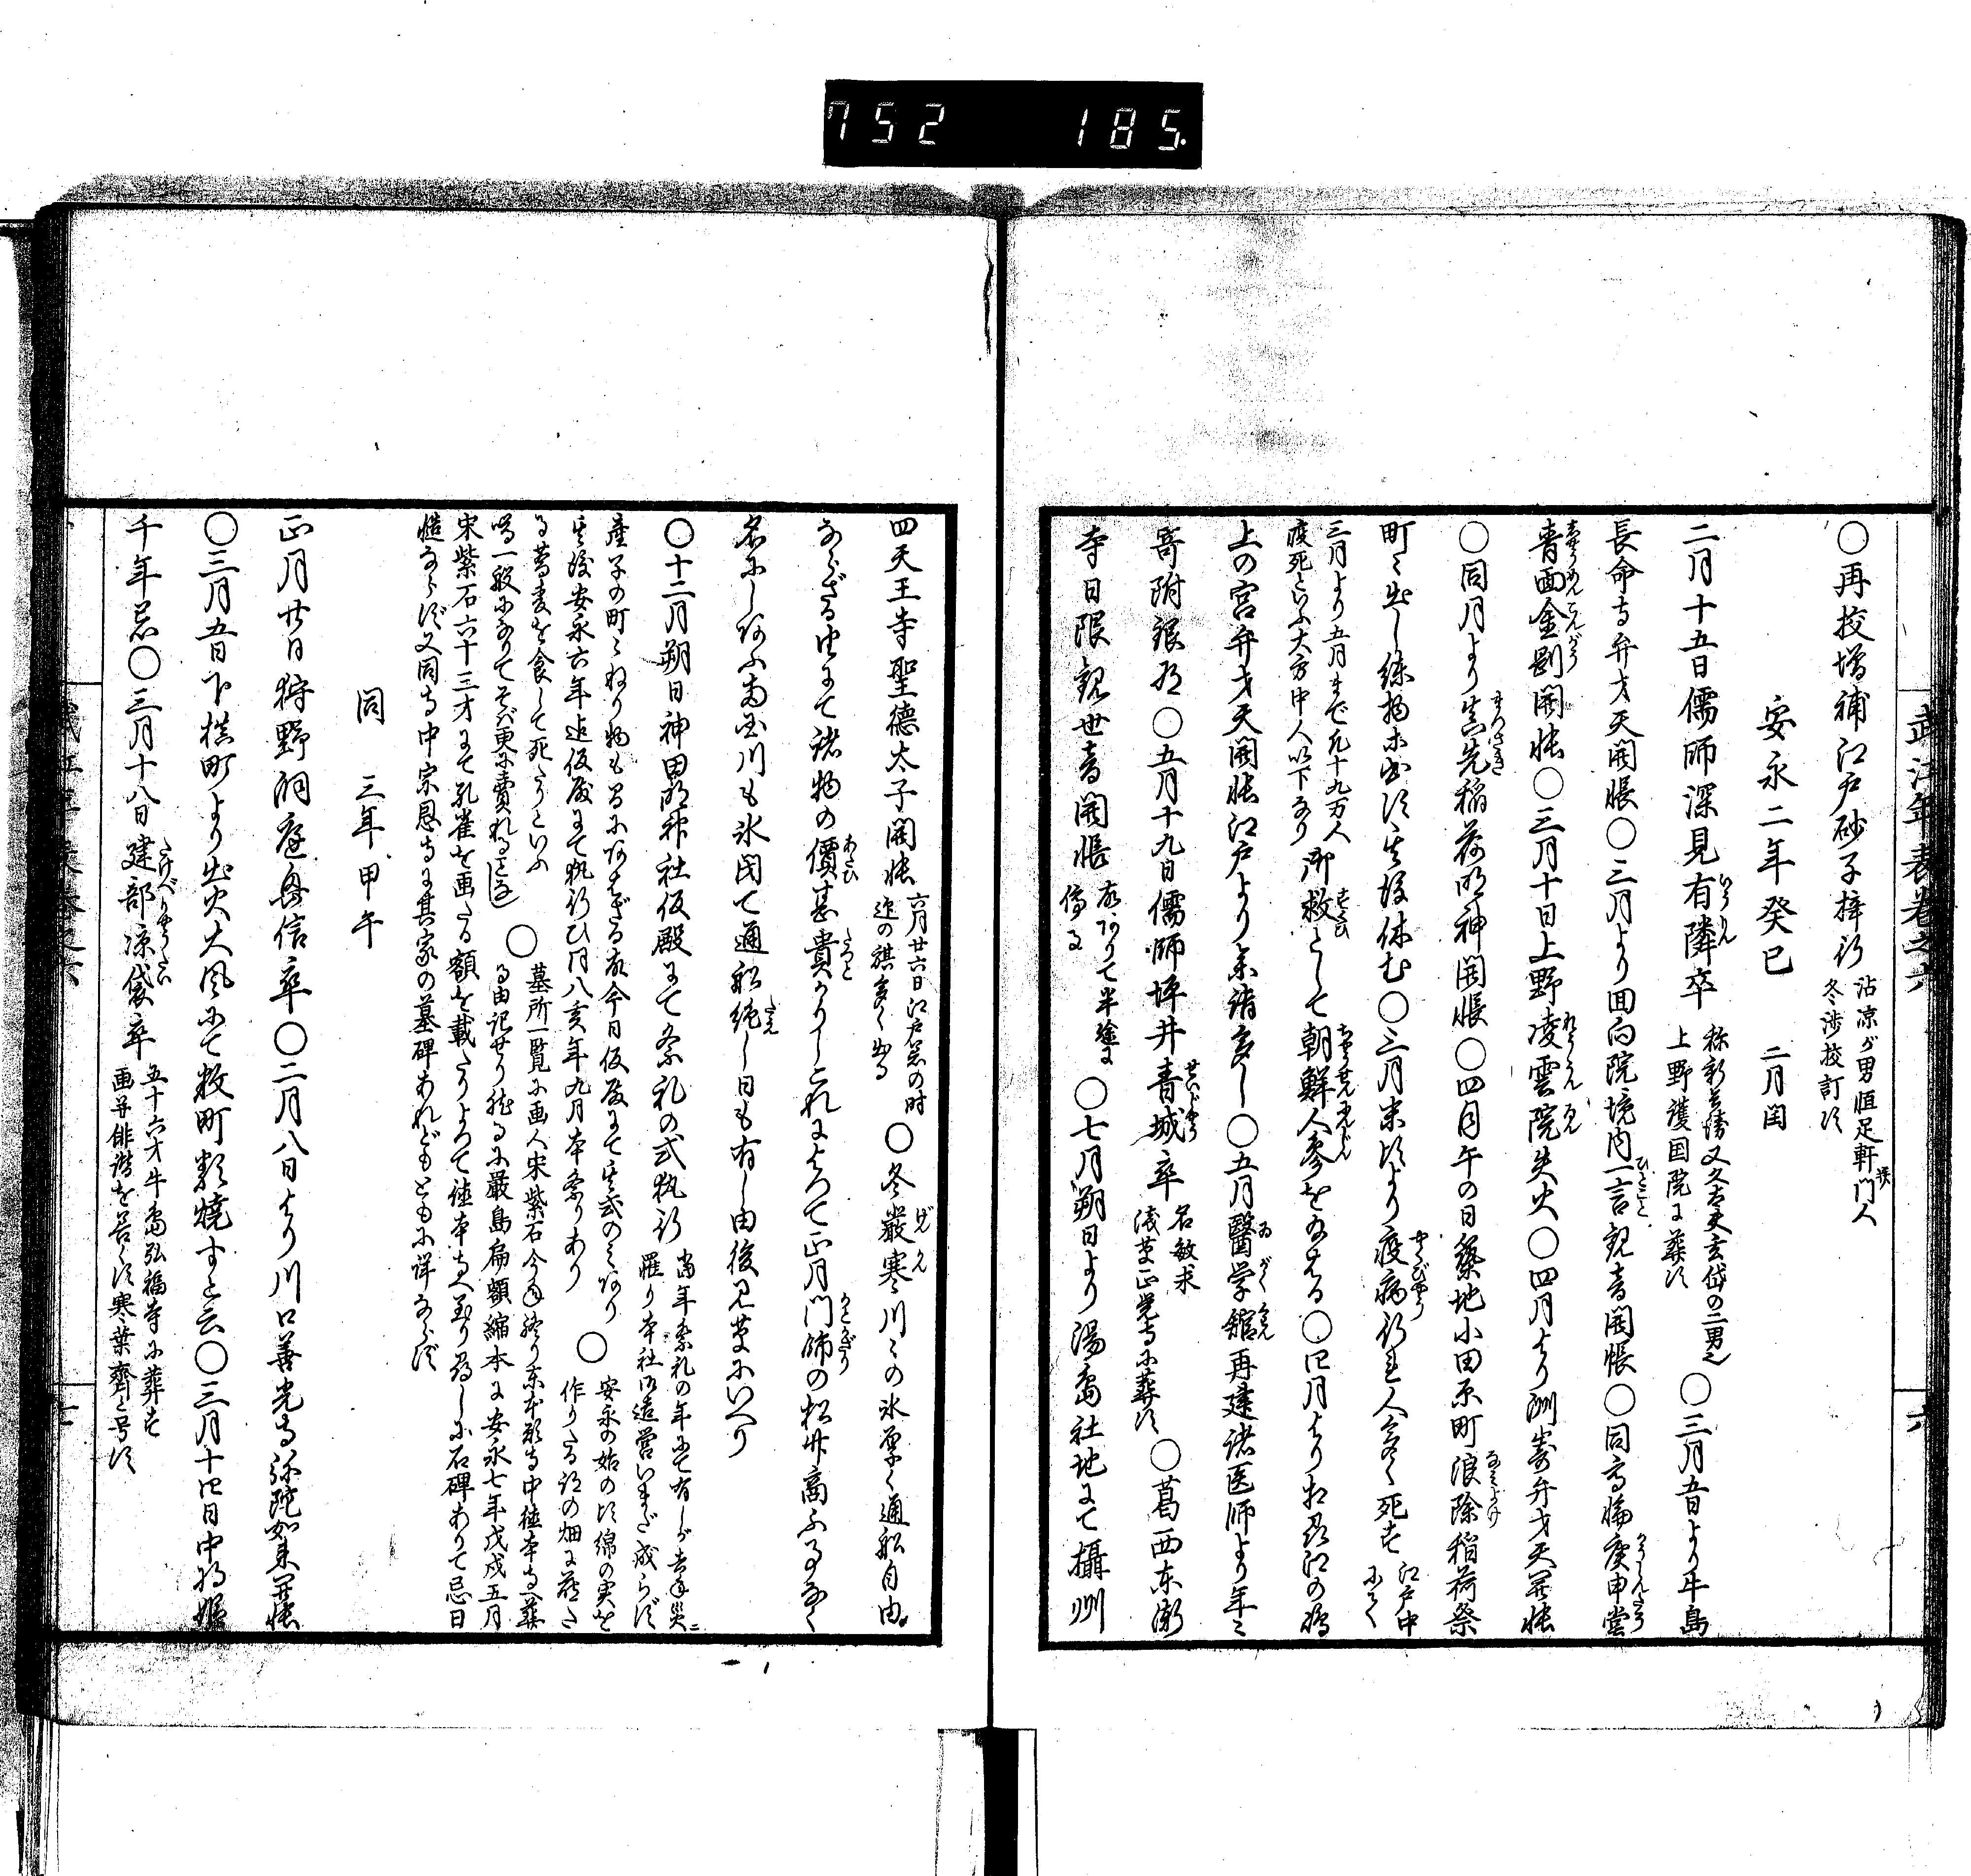 752 185.
武江年表巻之六
六
○再校増補江戸砂子梓行 沾凉が男恒足軒門人
冬渉校訂す
安永二年癸巳 二月閏
二月十五日儒師深見有隣卒 称新兵衛又久太夫玄岱の二男也
上野護国院に葬す
○三月五日より牛島
長命寺弁才天開帳○三月より回向院境内一言観音開帳○同寺脇庚申堂
青面金剛開帳○三月十日上野凌雲院失火○四月より洲崎弁才天開帳
○同月より真先稲荷明神開帳○四月午の日築地小田原町浪除稲荷祭
町々出し練物等出す其後休む○三月末頃より疫病行れ人多く死す 江戸中
にて
三月より五月まで凡十九万人
疫死といふ大方中人以下なり
御救として朝鮮人参を為下る○四月より相州江の島
上の宮弁才天開帳江戸より参詣多し○五月醫学館再建諸医師より年々
寄附銀有○五月十九日儒師坪井青城卒 名敏求
浅草正覚寺に葬す
○葛西東漸
寺日限観世音開帳 故ありて半途に
停る
○七月朔日より湯島社地にて攝州
四天王寺聖徳太子開帳 六月廿六日江戸着の時
迎の旗多く出る
○冬嚴寒川々の氷厚く通船自由
ならざるゆゑにて諸物の價甚貴かりしこれによつて正月門飾の松竹商ふ事なく
名にしあふ両国川も氷閉て通船絶し日も有し由後見草にいへり
○十二月朔日神田明神社仮殿にて祭礼の式執行 當年祭礼の年にて有しが去年災ニ
罹り本社御造営いまだ成らず
産子の町々ねり物も出にあはざる故今日仮殿にて其式のみあり
其後安永六年迄仮殿にて執行ひ同八亥年九月本祭りあり
○安永の始の頃綿の実を
作りたる跡の畑に蒔た
る蕎麦を食して死すといふ
噂一般になりてそば更に賣れざりし
○墓所一覧に画人宋紫石今年終り東本願寺中徳本寺に葬
る由記せり然るに嚴島扁額縮本に安永七年戊戌五月
宋紫石六十三才にて孔雀を画たる額を載たりよつて徳本寺へ至り尋しに石碑ありて忌日
慥ならず又同寺中宗恩寺に其家の墓碑あれどもともに詳ならず
同 三年甲午
正月廿日狩野洞庭興信卒○二月八日より川口善光寺弥陀如来開帳
○三月五日下槙町より出火大風にて数町類焼すと云○三月十四日中将姫
千年忌○三月十八日建部凉袋卒 五十六才牛島弘福寺に葬す
画并俳諧を善くす寒葉齋と号す